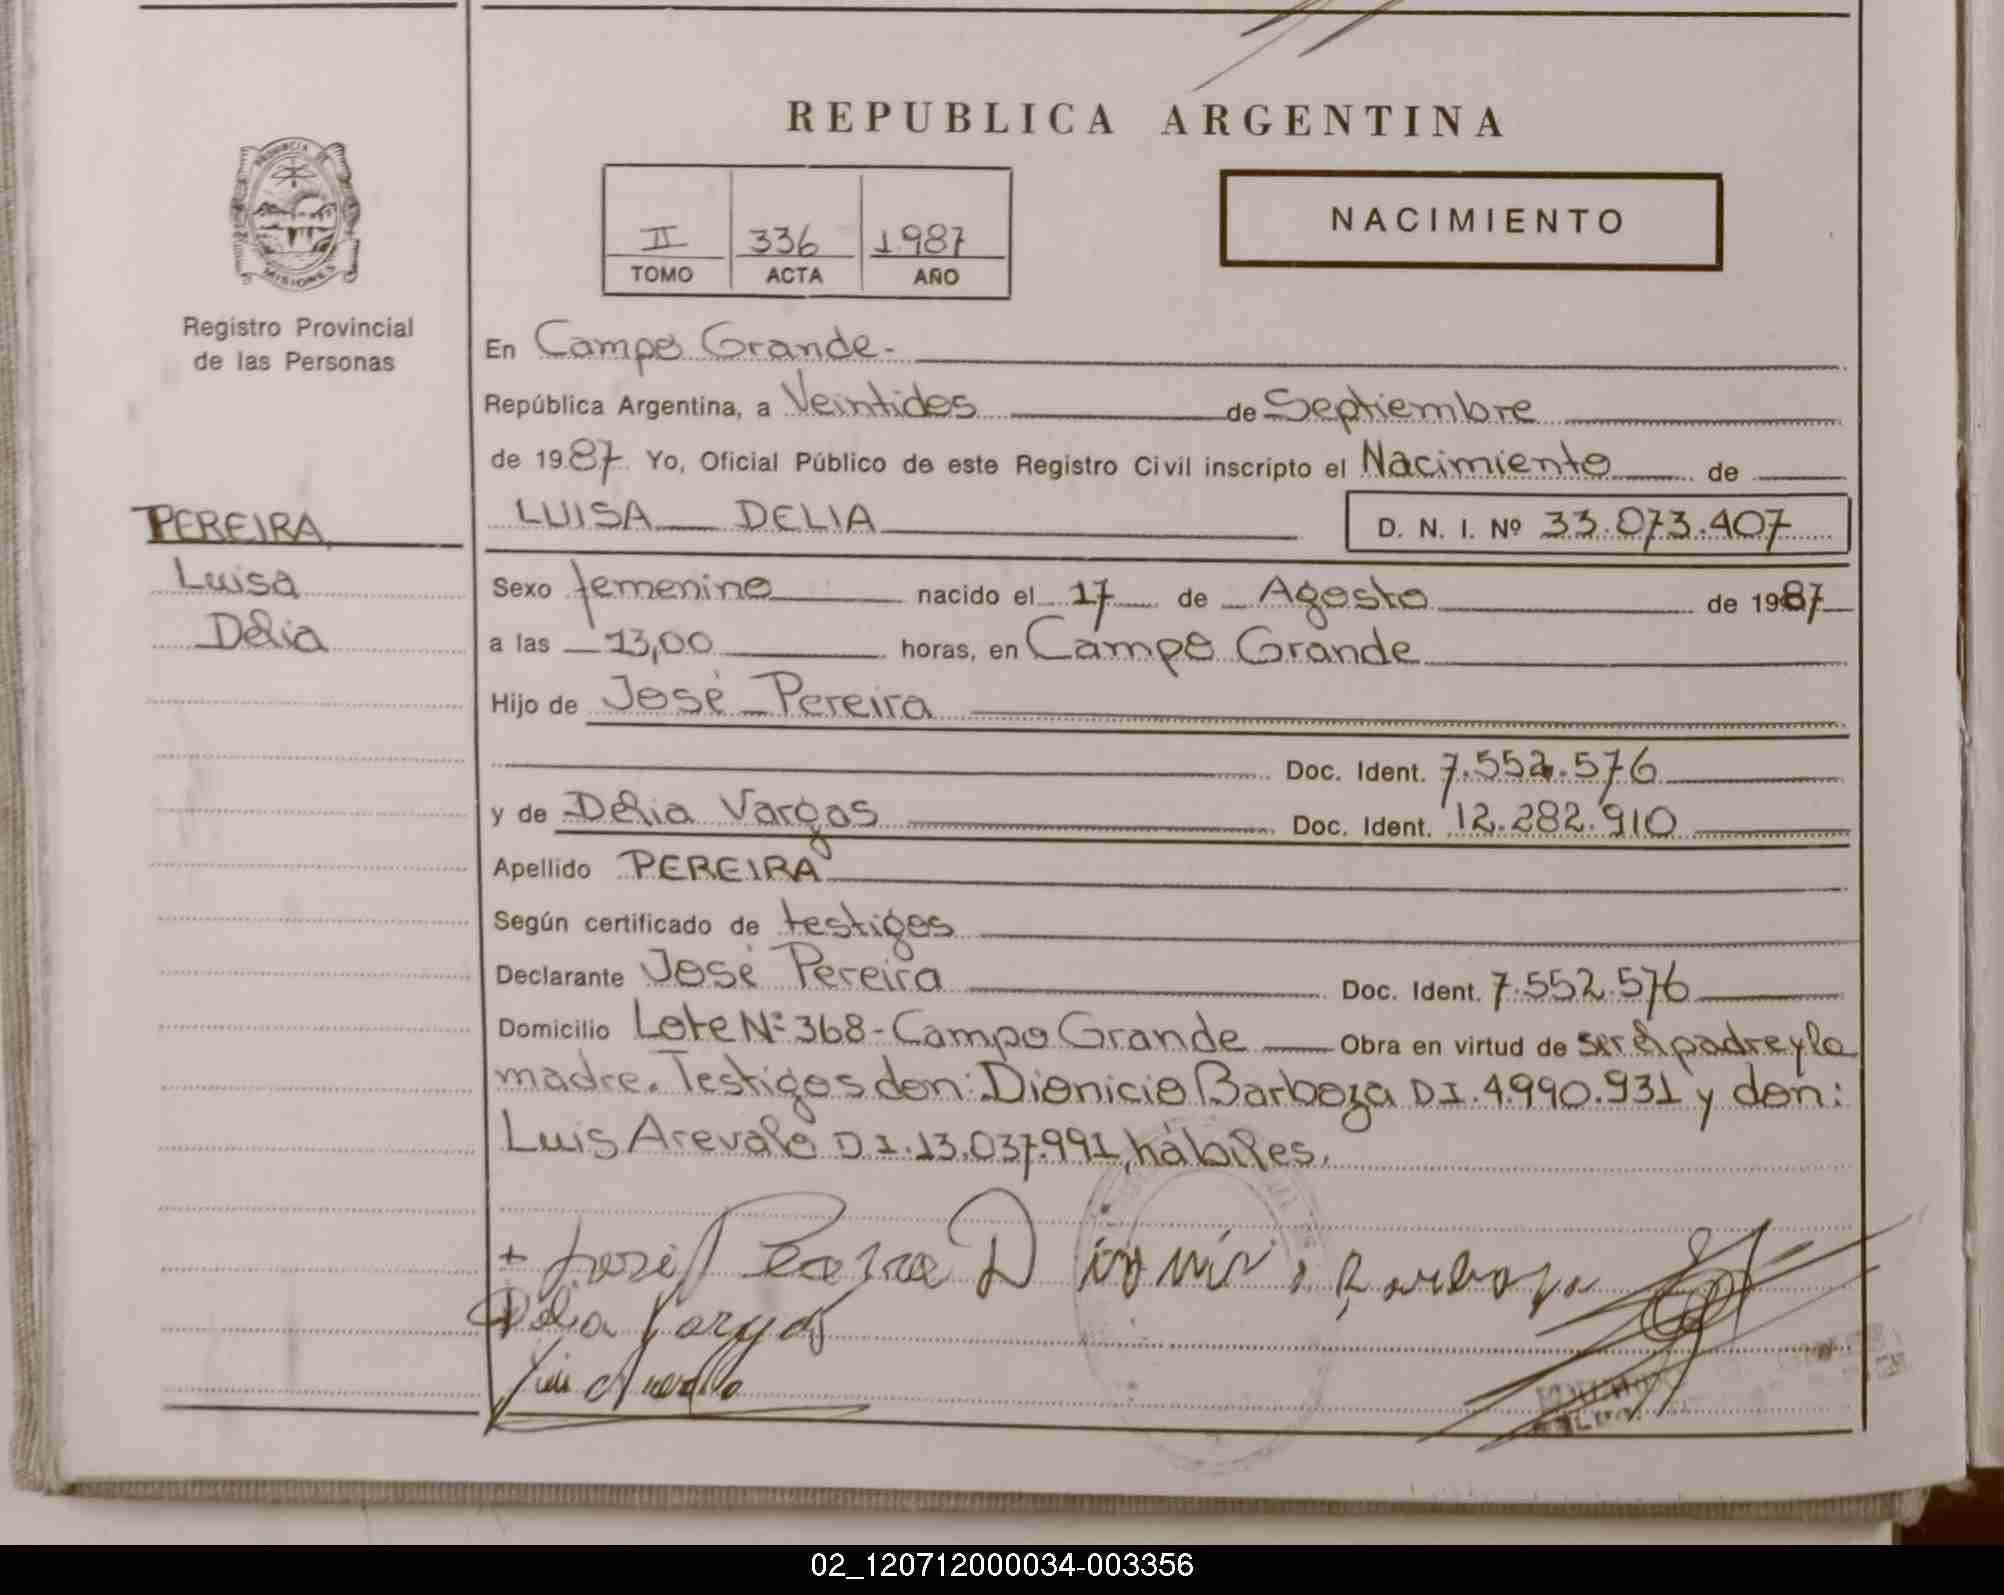 REPUBLICA ARGENTINA
PROVINCIA DE
MISIONES
II 336 1987
TOMO ACTA AÑO
NACIMIENTO
Registro Provincial
de las Personas
En Campo Grande.-
República Argentina, a Veintidos de Septiembre
de 1987 Yo, Oficial Público de este Registro Civil inscripto el Nacimiento de
LUISA DELIA D. N. I. Nº 33.073.407
PEREIRA
Luisa
Delia
Sexo femenino nacido el 17 de Agosto de 1987
a las 13,00 horas, en Campo Grande
Hijo de José Pereira
Doc. Ident. 7.552.576
y de Delia Vargas Doc. Ident. 12.282.910
Apellido PEREIRA
Según certificado de testigos
Declarante José Pereira Doc. Ident. 7.552.576
Domicilio Lote Nº 368 - Campo Grande Obra en virtud de ser el padre y la
madre. Testigos don: Dionicio Barboza D I. 4.990.931 y don:
Luis Arevalo D I. 13.037.991, hábiles.
+ José Pereira Dionicio Barboza
Delia Vargas
Luis Arevalo
02_120712000034-003356